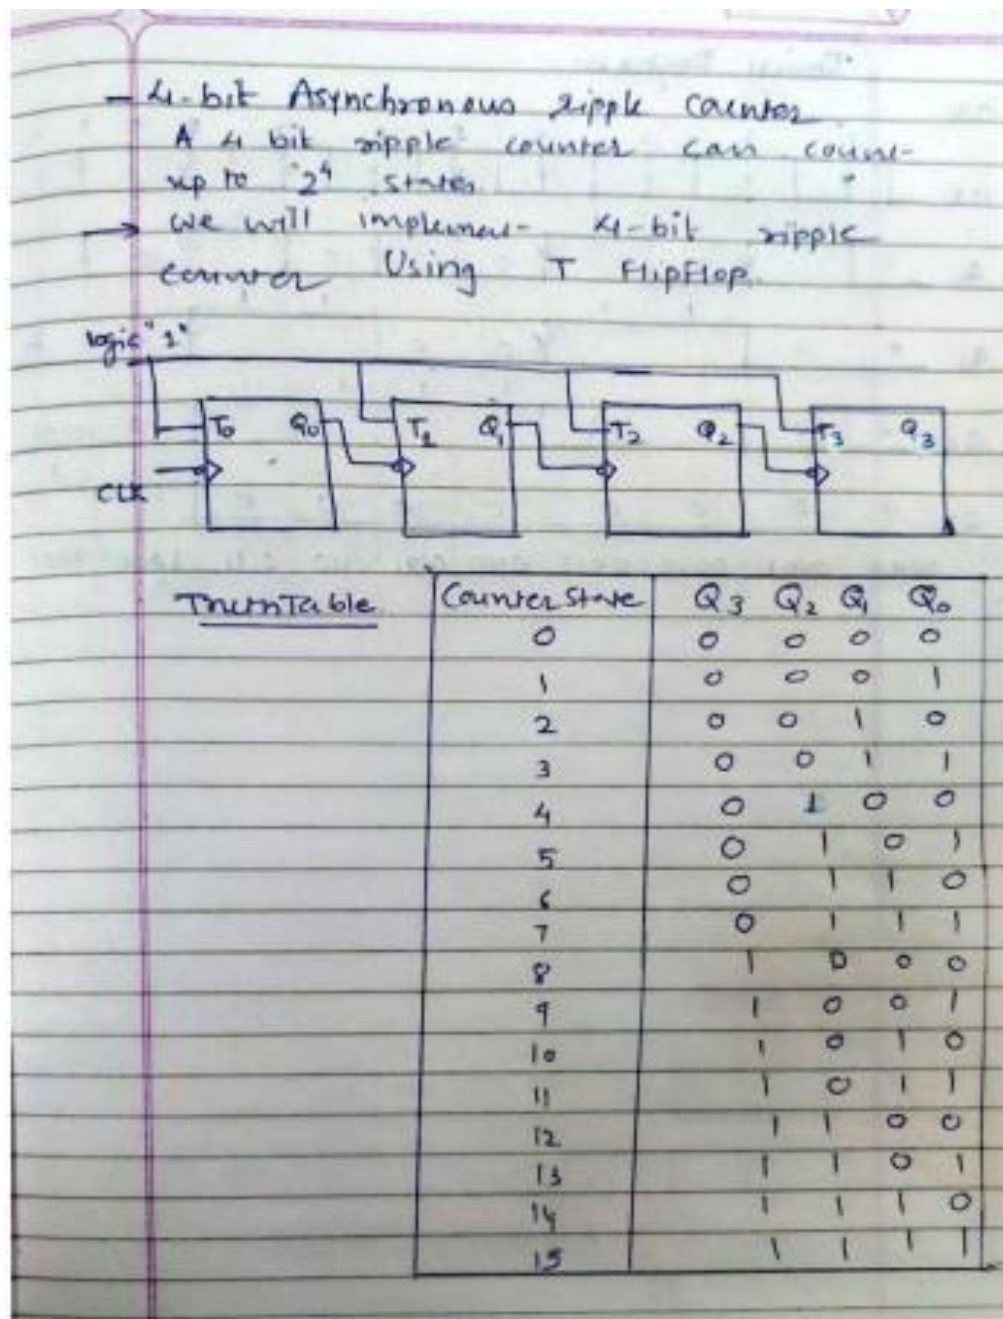 - 4-bit Asynchronous ripple counter
A 4 bit ripple counter can count
up to 2⁴ states
→ we will implement 4-bit ripple
counter Using T FlipFlop.
logic "1"
T0 Q0 T1 Q1 T2 Q2 T3 Q3
CLK
TruthTable Counter State Q3 Q2 Q1 Q0
0 0 0 0 0
1 0 0 0 1
2 0 0 1 0
3 0 0 1 1
4 0 1 0 0
5 0 1 0 1
6 0 1 1 0
7 0 1 1 1
8 1 0 0 0
9 1 0 0 1
10 1 0 1 0
11 1 0 1 1
12 1 1 0 0
13 1 1 0 1
14 1 1 1 0
15 1 1 1 1